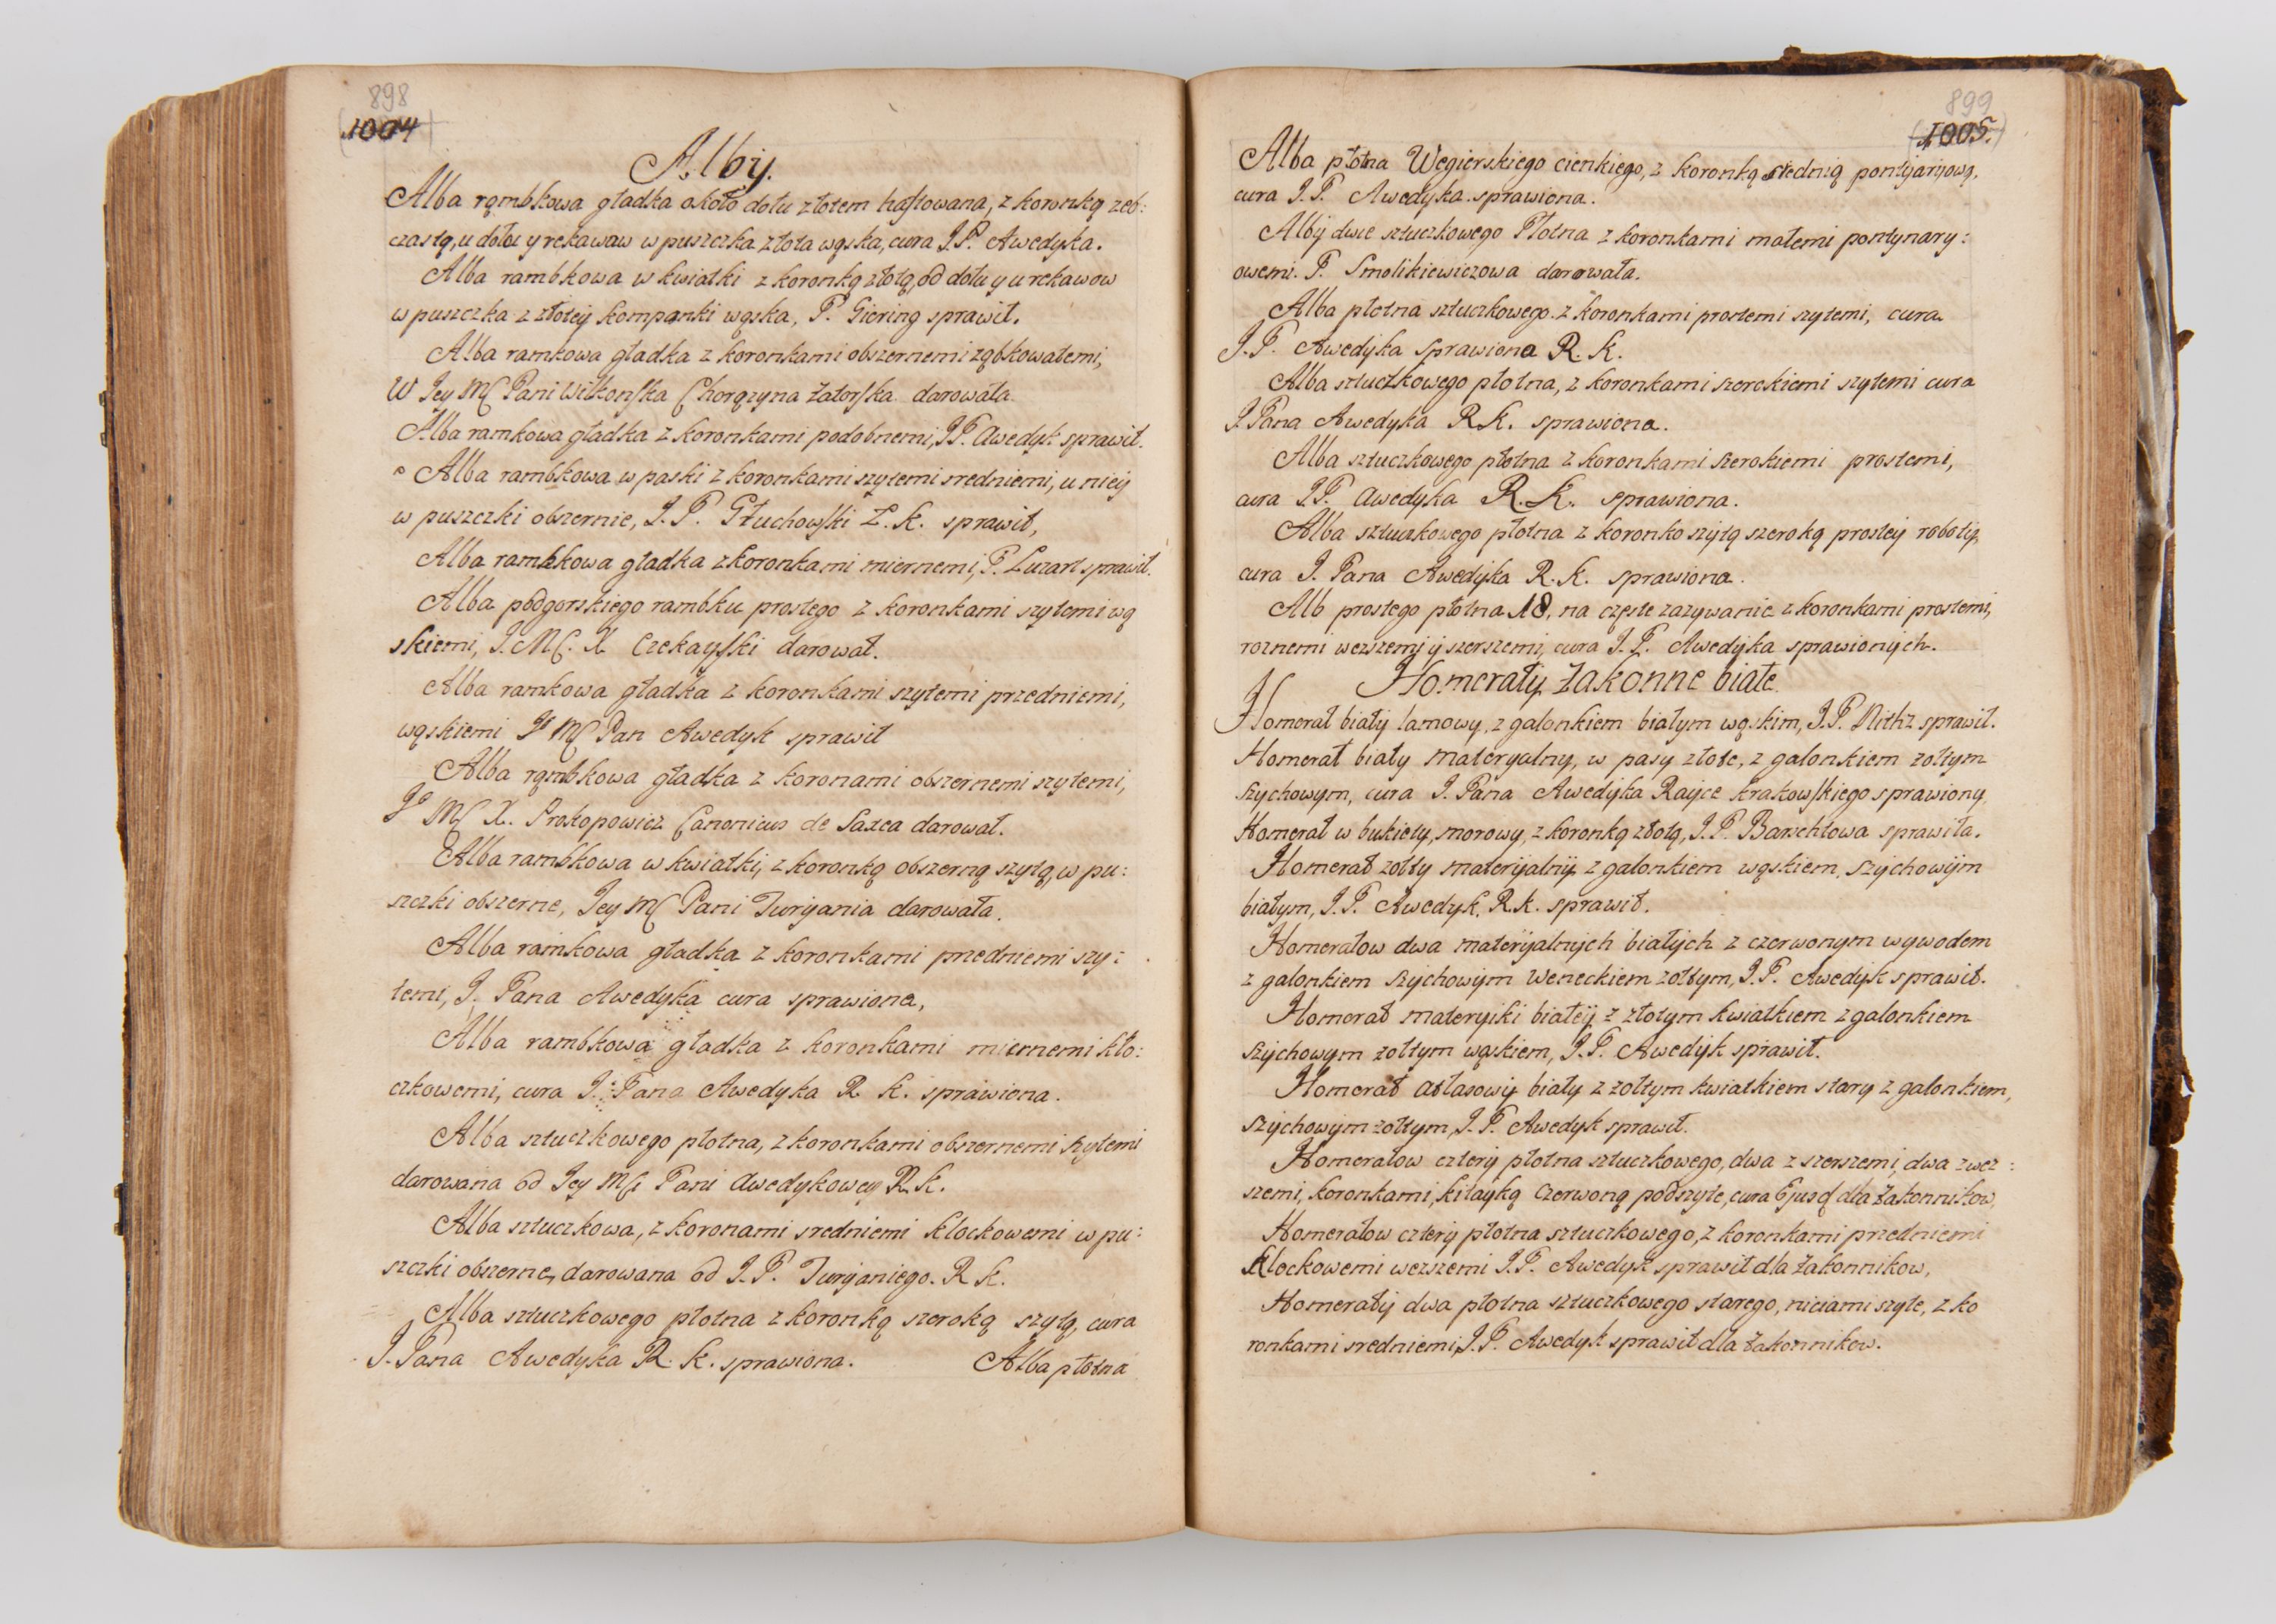 898
1004
Alby.
Alba rąmbkowa gładka około dołu złotem haftowana, z koronką zeb:
czastą, u dołu y rekawaw wpuszczka złota wąska, cura J.P. Awedyka.
Alba rambkowa w kwiatki z koronką złotą, od dołu y u rekawow
wpuszczka z złotey kompanki wąska, P. Giering sprawił.
Alba ramkowa gładka z koronkami obszernemi ząbkowatemi,
W Jey MC Pani Wilkonska Chorązyna Zatorska darowała
Alba ramkowa gładka z koronkami podobnemi, J.P. Awedyk sprawił.
Alba rambkowa w paski z koronkami szytemi sredniemi, u niey
wpuszczki obszernie, J.P. Głuchowski Z.K. sprawił,
Alba rambkowa gładka z koronkami miernemi, P. Luzart sprawił.
Alba podgorskiego rambku prostego z koronkami szytemi wą
skiemi, J.MC. X Czekayski darował.
Alba ramkowa gładka z koronkami szytemi przedniemi,
wąskiemi JP MC Pan Awedyk sprawił
Alba rąmbkowa gładka z koronami obszernemi szytemi,
JP MC X. Prokopowicz Canonicus de Saxea darował.
Alba rambkowa w kwiatki, z koronką obszerną szytą, wpu:
szczki obszerne, Jey MC Pani Turyania darowała.
Alba ramkowa gładka z koronkami przedniemi szy:
temi, J. Pana Awedyka cura sprawiona,
Alba rambkowa gładka z koronkami miernemi klo:
czkowemi, cura J. Pana Awedyka R K. sprawiona.
Alba sztuczkowego płotna, z koronkami obszernemi szytemi
darowana od Jey MCi Pani Awedykowey R.K.
Alba sztuczkowa, z koronami sredniemi klockowemi wpu:
szczki obszerne, darowana od J.P. Turyaniego. R K.
Alba sztuczkowego płotna z koronką szeroką szytą, cura
J. Pana Awedyka R. K. sprawiona. Alba płotna
899
1005.
Alba płotna Wegierskiego cienkiego, z koronką srednią pontyaryową,
cura J.P. Awedyka sprawiona.
Alby dwie sztuczkowego Płotna z koronkami małemi pontynary:
owemi. P. Smolikiewiczowa darowała.
Alba płotna sztuczkowego z koronkami prostemi szytemi, cura
J.P. Awedyka sprawiona R. K.
Alba sztuczkowego płotna, z koronkami szerokiemi szytemi cura
J. Pana Awedyka R K. sprawiona.
Alba sztuczkowego płotna z koronkami szerokiemi prostemi,
cura J.P. Awedyka R. K. sprawiona.
Alba sztuczkowego płotna z koronko szytą szeroką prostey roboty,
cura J. Pana Awedyka R. K. sprawiona.
Alb prostego płotna 18. na częste zazywanie z koronkami prostemi,
roznemi wezszemi y szerszemi, cura J.P. Awedyka sprawionych.
Homerały Zakonne białe.
Homerał biały lamowy, z galonkiem białym wąskim, J.P. Nithz sprawił.
Homerał biały materyalny, w pasy złote, z galonkiem zołtym
szychowym, cura J. Pana Awedyka Rayce Krakowskiego sprawiony
Homerał w bukiety, morowy, z koronką złotą, J.P. Barschtowa sprawiła.
Homerał zołty materyalny z galonkiem wąskiem, szychowym
białym, J.P. Awedyk, R.K. sprawił.
Homerałow dwa materyalnych białych z czerwonym wywodem
z galonkiem szychowym weneckiem zołtym, J.P. Awedyk sprawił.
Homerał materyiki białey z złotym kwiatkiem z galonkiem
szychowym zołtym wąskiem, J.P. Awedyk sprawił.
Homerał Atłasowy biały z zołtym kwiatkiem stary z galonkiem,
szychowym zołtym, J.P. Awedyk sprawił.
Homerałow cztery płotna sztuczkowego, dwa z szerszemi, dwa z wez:
szemi, koronkami, kitayką czerwoną podszyte, cura Ejusd dla Zakonnikow,
Homerałow cztery płotna sztuczkowego, z koronkami przedniemi
Klockowemi wezszemi J.P. Awedyk sprawił dla Zakonnikow,
Homerały dwa płotna sztuczkowego starego, niciami szyte, z ko
ronkami sredniemi, J.P. Awedyk sprawił dla Zakonnikow.